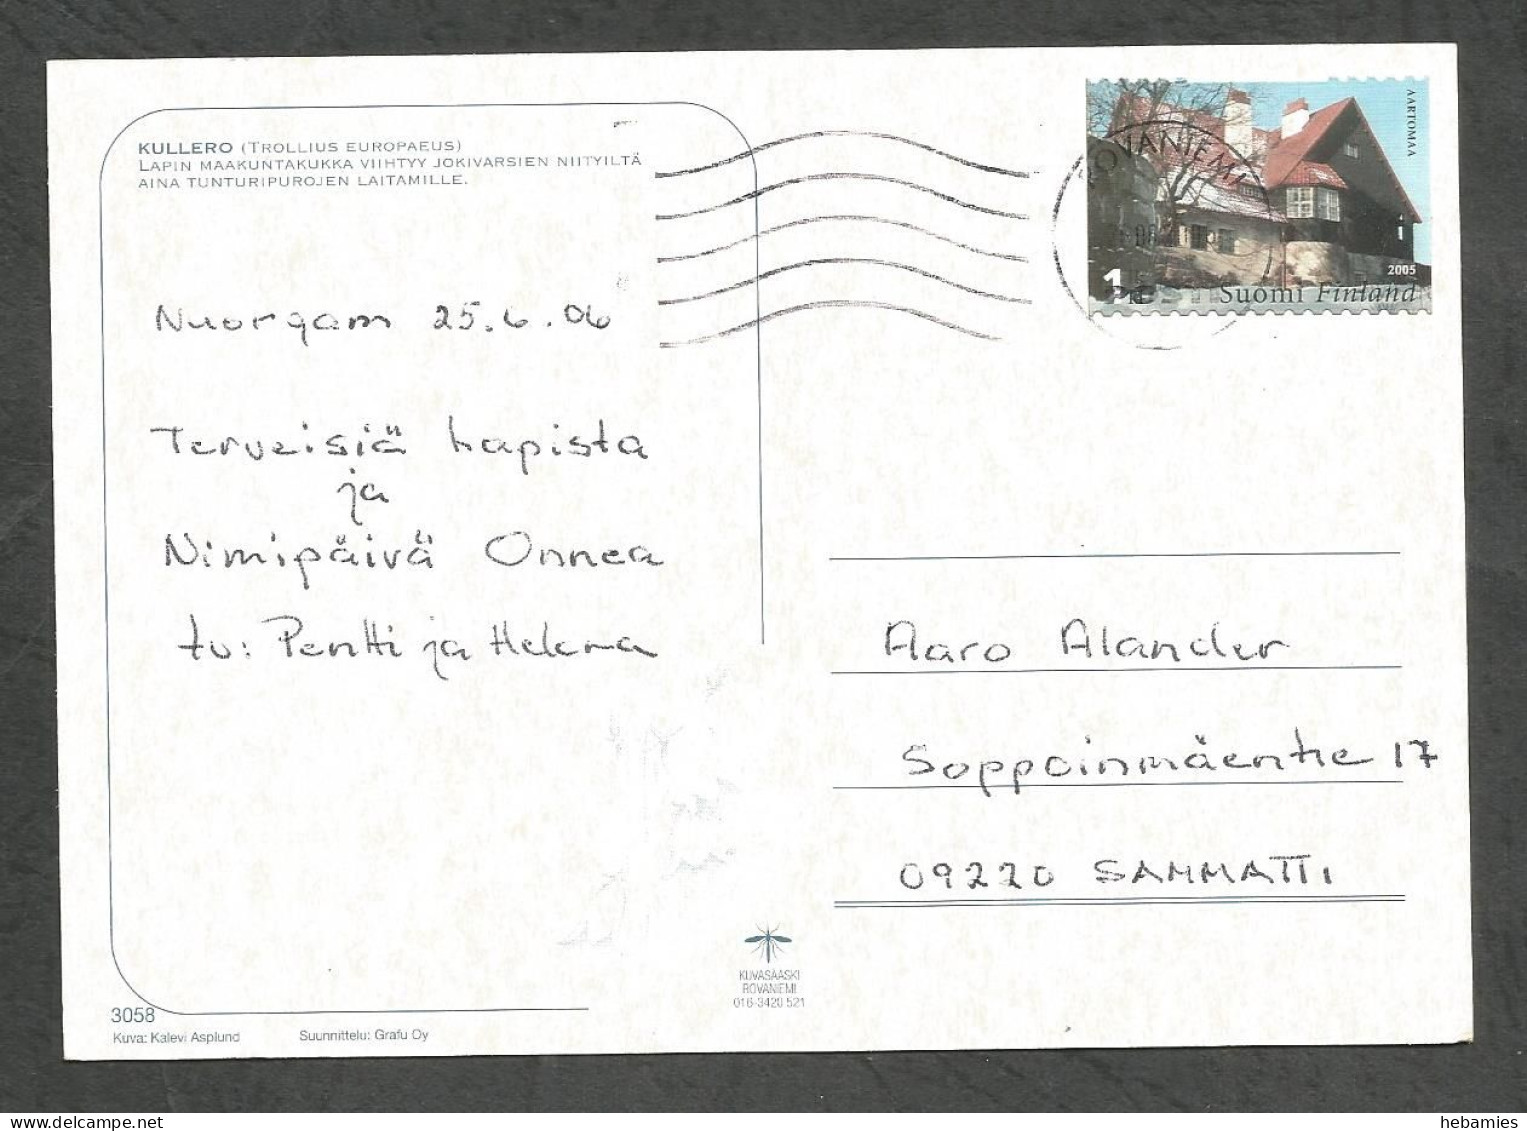 KULLERO (TROLLIUS EUROPAEUS)
LAPIN MAAKUNTAKUKKA VIIHTYY JOKIVARSIEN NIITYILTÄ
AINA TUNTURIPUROJEN LAITAMILLE.
Nuorgam 25.6.06
Terveisiä Lapista
ja
Nimipäivä Onnea
tv: Pentti ja Helena
3058
Kuva: Kalevi Asplund
Suunnittelu: Grafu Oy
KUVASÄÄSKI
ROVANIEMI
016-3420 521
ROVANIEMI
AARTOMAA
2005
1
Suomi Finland
Aaro Alander
Soppoinmäentie 17
09220 SAMMATTI
hebamies